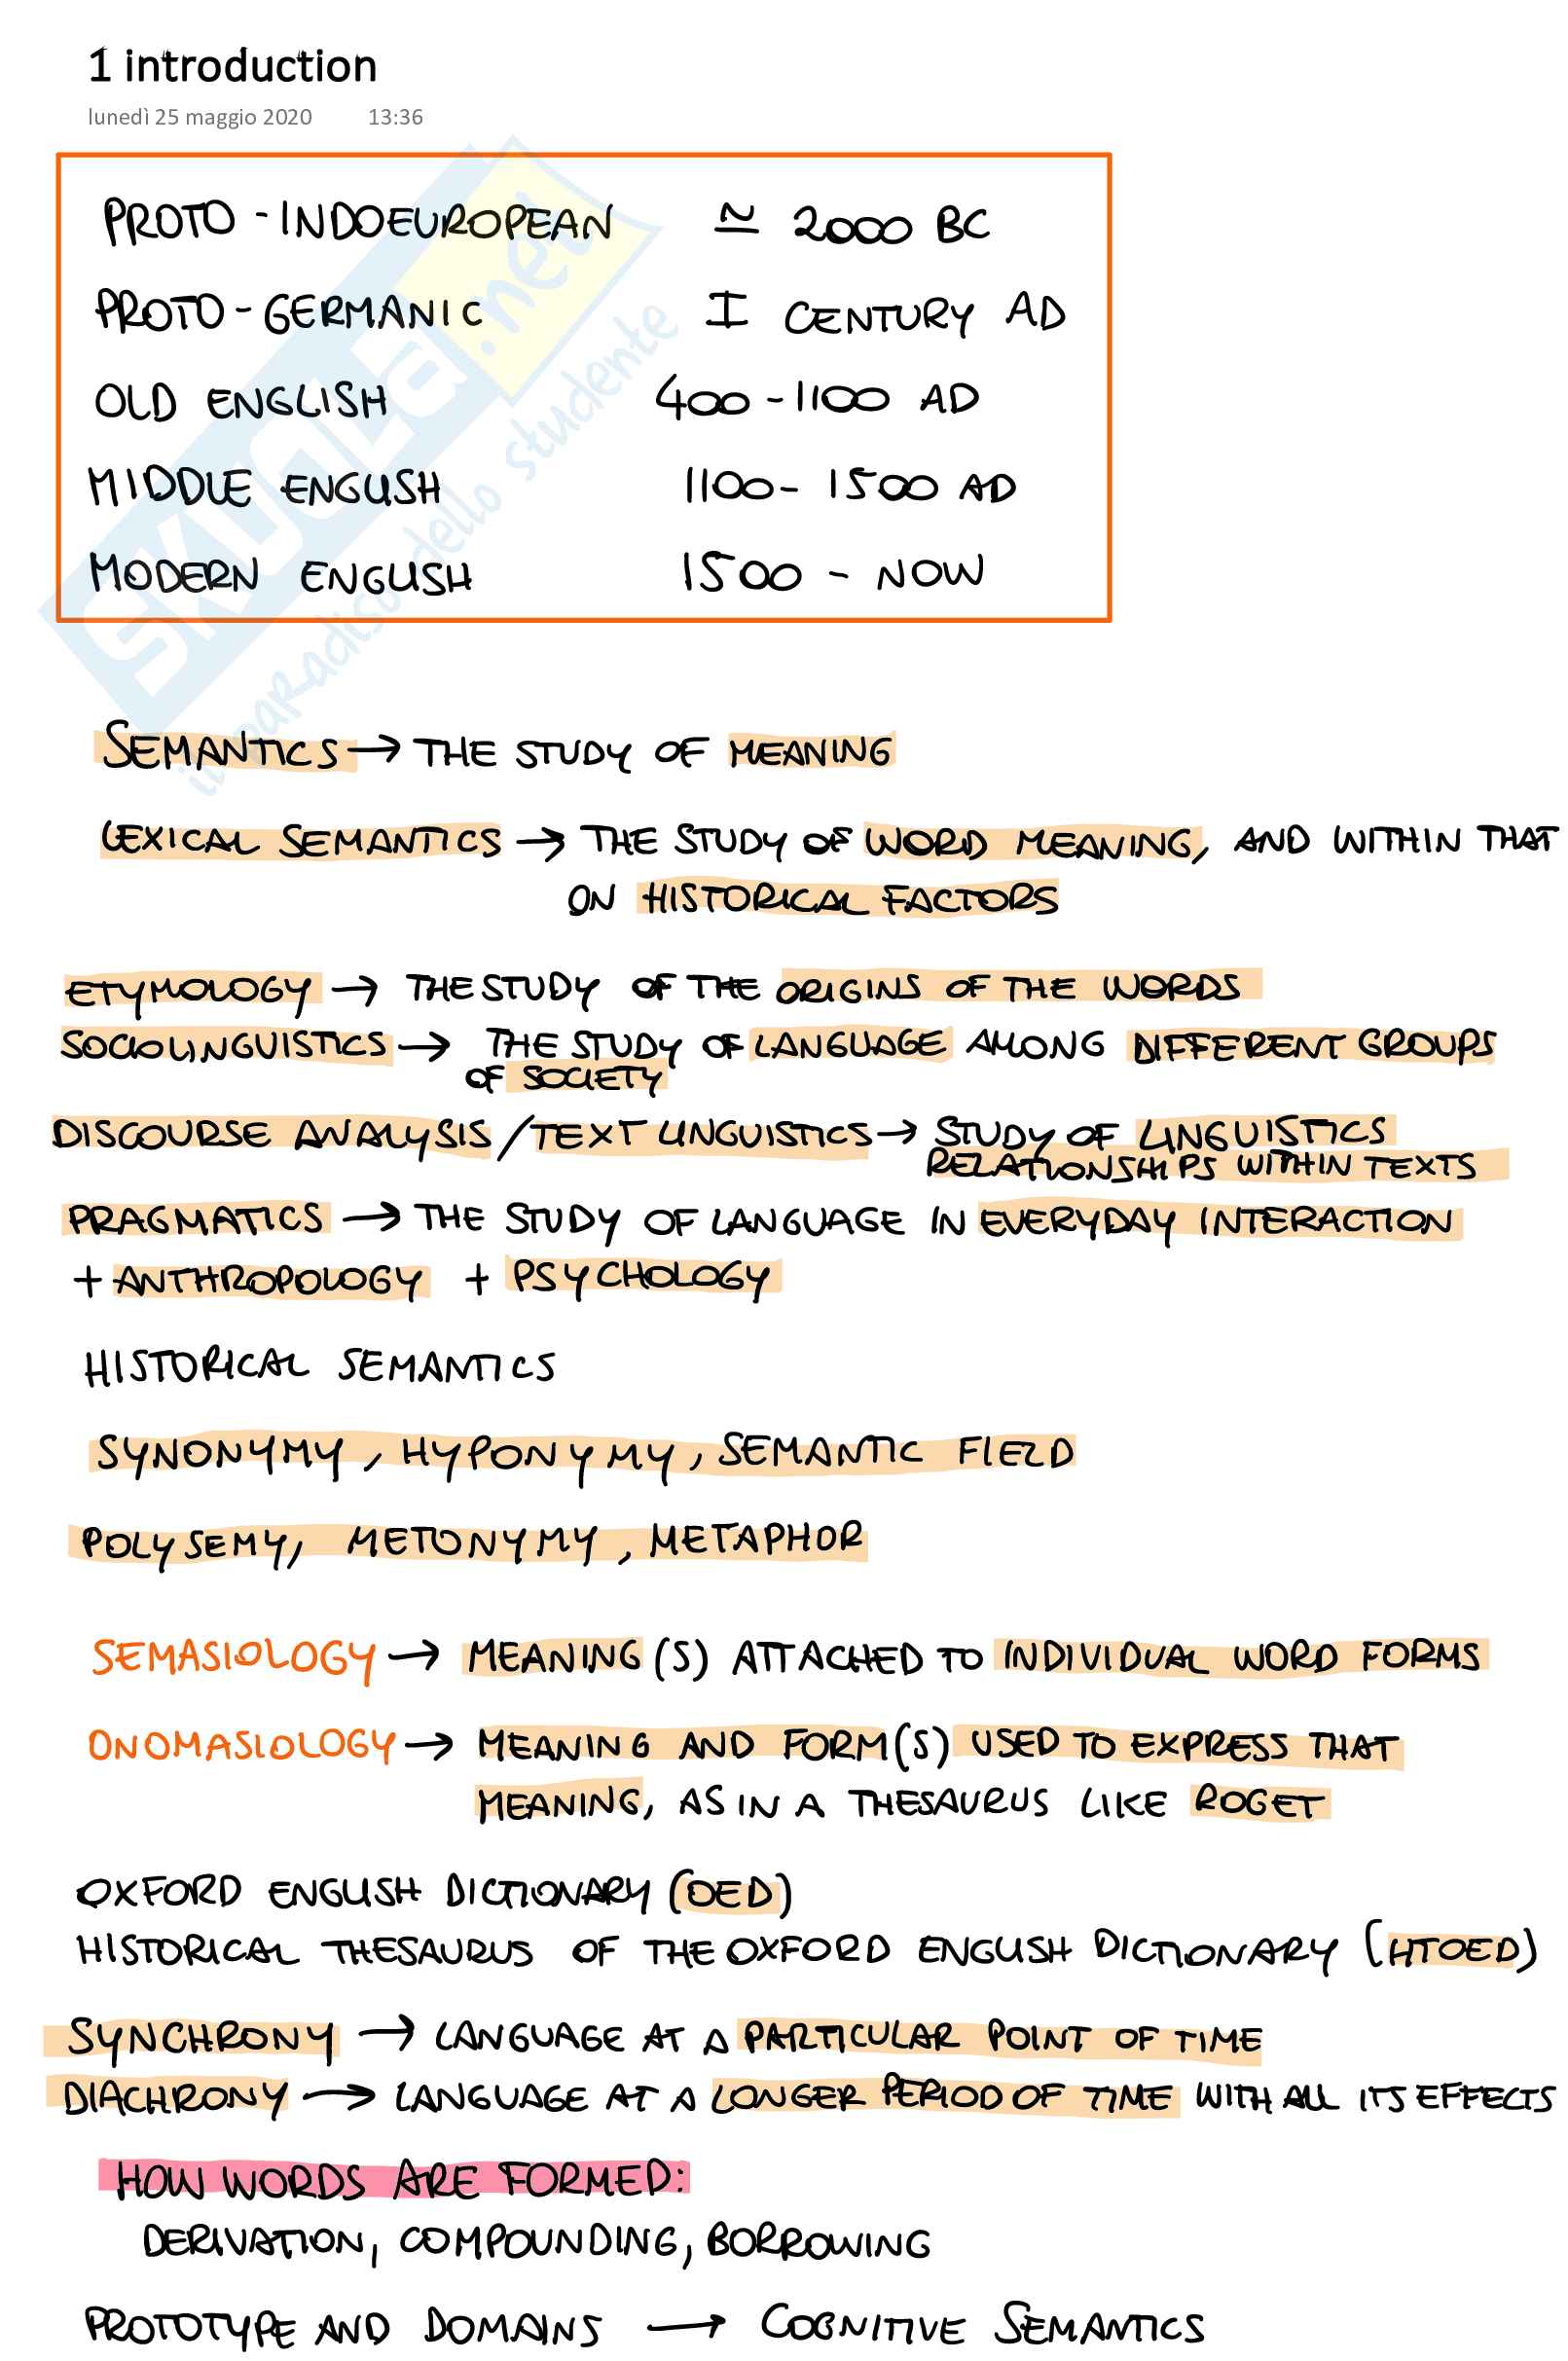 1 introduction
lunedì 25 maggio 2020 13:36
PROTO-INDOEUROPEAN ≃ 2000 BC
PROTO-GERMANIC I CENTURY AD
OLD ENGLISH 400-1100 AD
MIDDLE ENGLISH 1100-1500 AD
MODERN ENGLISH 1500-NOW
SKUOLA.net
il paradiso dello studente
SEMANTICS → THE STUDY OF MEANING
LEXICAL SEMANTICS → THE STUDY OF WORD MEANING, AND WITHIN THAT
ON HISTORICAL FACTORS
ETYMOLOGY → THE STUDY OF THE ORIGINS OF THE WORDS
SOCIOLINGUISTICS → THE STUDY OF LANGUAGE AMONG DIFFERENT GROUPS
OF SOCIETY
DISCOURSE ANALYSIS/TEXT LINGUISTICS → STUDY OF LINGUISTICS
RELATIONSHIPS WITHIN TEXTS
PRAGMATICS → THE STUDY OF LANGUAGE IN EVERYDAY INTERACTION
+ ANTHROPOLOGY + PSYCHOLOGY
HISTORICAL SEMANTICS
SYNONYMY, HYPONYMY, SEMANTIC FIELD
POLYSEMY, METONYMY, METAPHOR
SEMASIOLOGY → MEANING(S) ATTACHED TO INDIVIDUAL WORD FORMS
ONOMASIOLOGY → MEANING AND FORM(S) USED TO EXPRESS THAT
MEANING, AS IN A THESAURUS LIKE ROGET
OXFORD ENGLISH DICTIONARY (OED)
HISTORICAL THESAURUS OF THE OXFORD ENGLISH DICTIONARY (HTOED)
SYNCHRONY → LANGUAGE AT A PARTICULAR POINT OF TIME
DIACHRONY → LANGUAGE AT A LONGER PERIOD OF TIME WITH ALL ITS EFFECTS
HOW WORDS ARE FORMED:
DERIVATION, COMPOUNDING, BORROWING
PROTOTYPE AND DOMAINS → COGNITIVE SEMANTICS